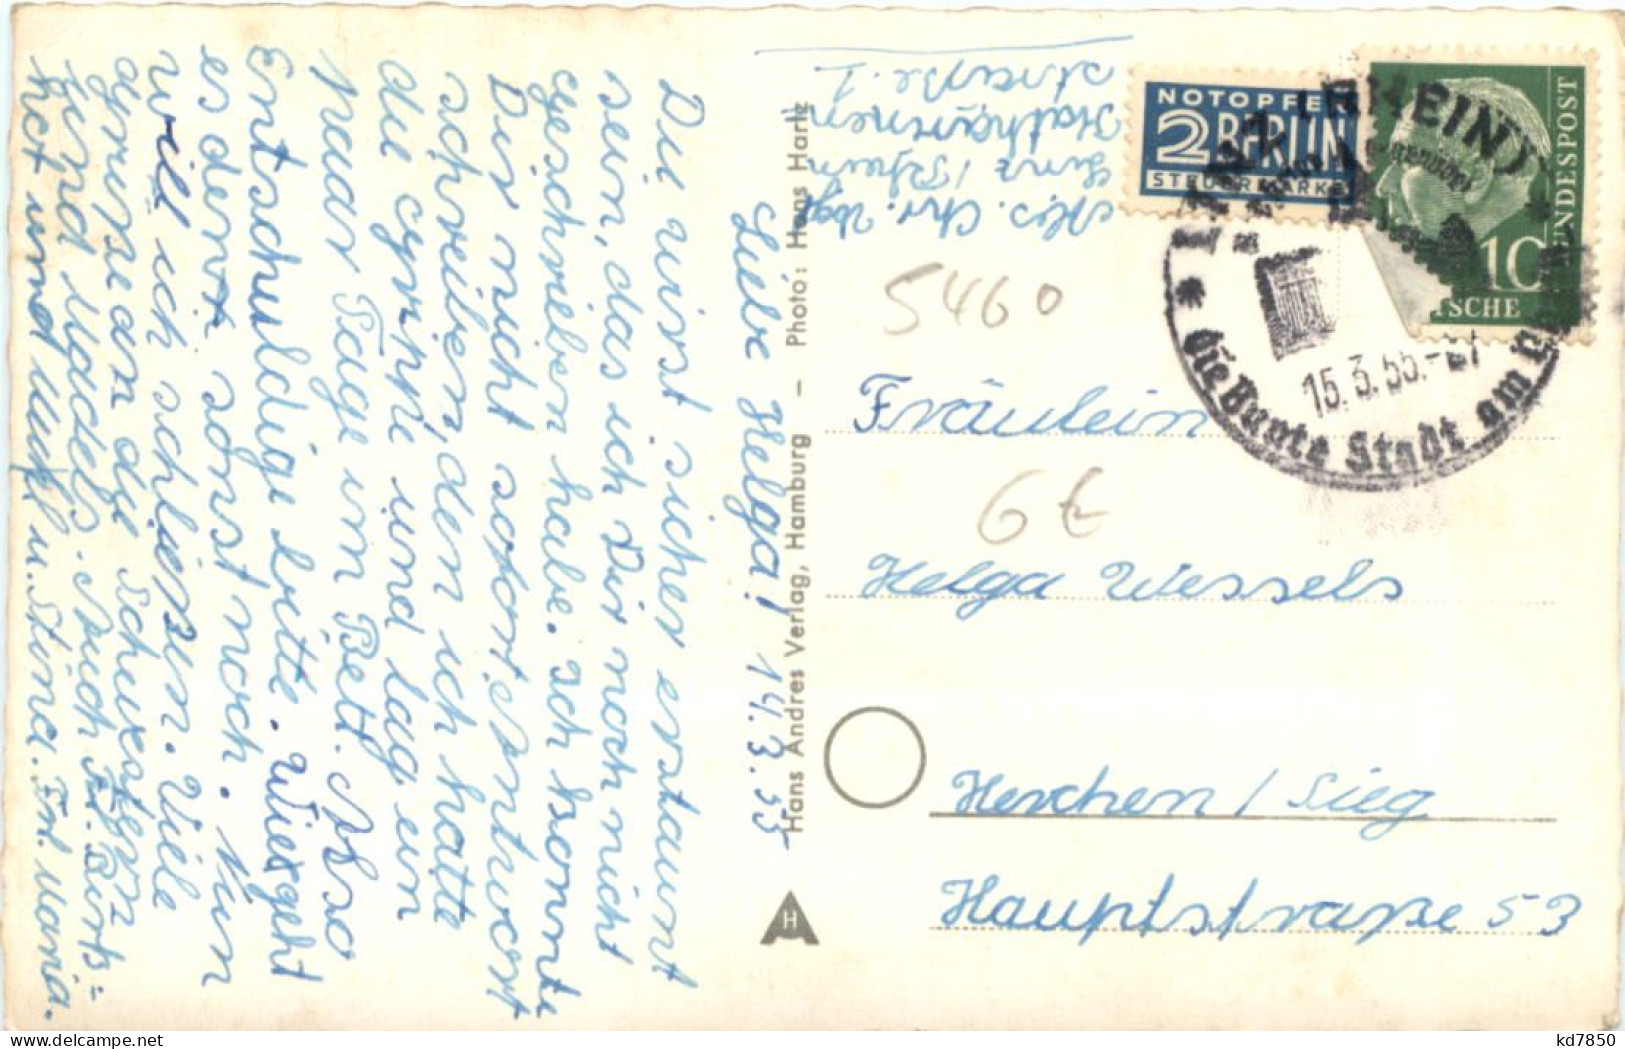 Abs. Chr. Vogt
Linz / Rhein
Katharinen
strasse 1
Liebe Helga! 14.3.55
Du wirst sicher erstaunt
sein, das ich Dir noch nicht
geschrieben habe. Ich konnte
Dir nicht sofort Antwort
schreiben, denn ich hatte
die Grippe und lag ein
paar Tage im Bett. Also
Entschuldige bitte. Wie geht
es denn sonst noch. Nun
will ich schließen. Viele
Grüsse an die Schwestern
und Mädels. Auch Fr. Birts=
Frl. Maria.
Hans Andres Verlag, Hamburg – Photo: Hans Hartz
H
NOTOPFER
2 BERLIN
STEUERMARKE
DEUTSCHE BUNDESPOST
10
LINZ (RHEIN)
15.3.55.-17
die Bunte Stadt am Rhein
5460
6€
Fräulein
Helga Wessels
Herchen / Sieg
Hauptstrasse 53
kd7850